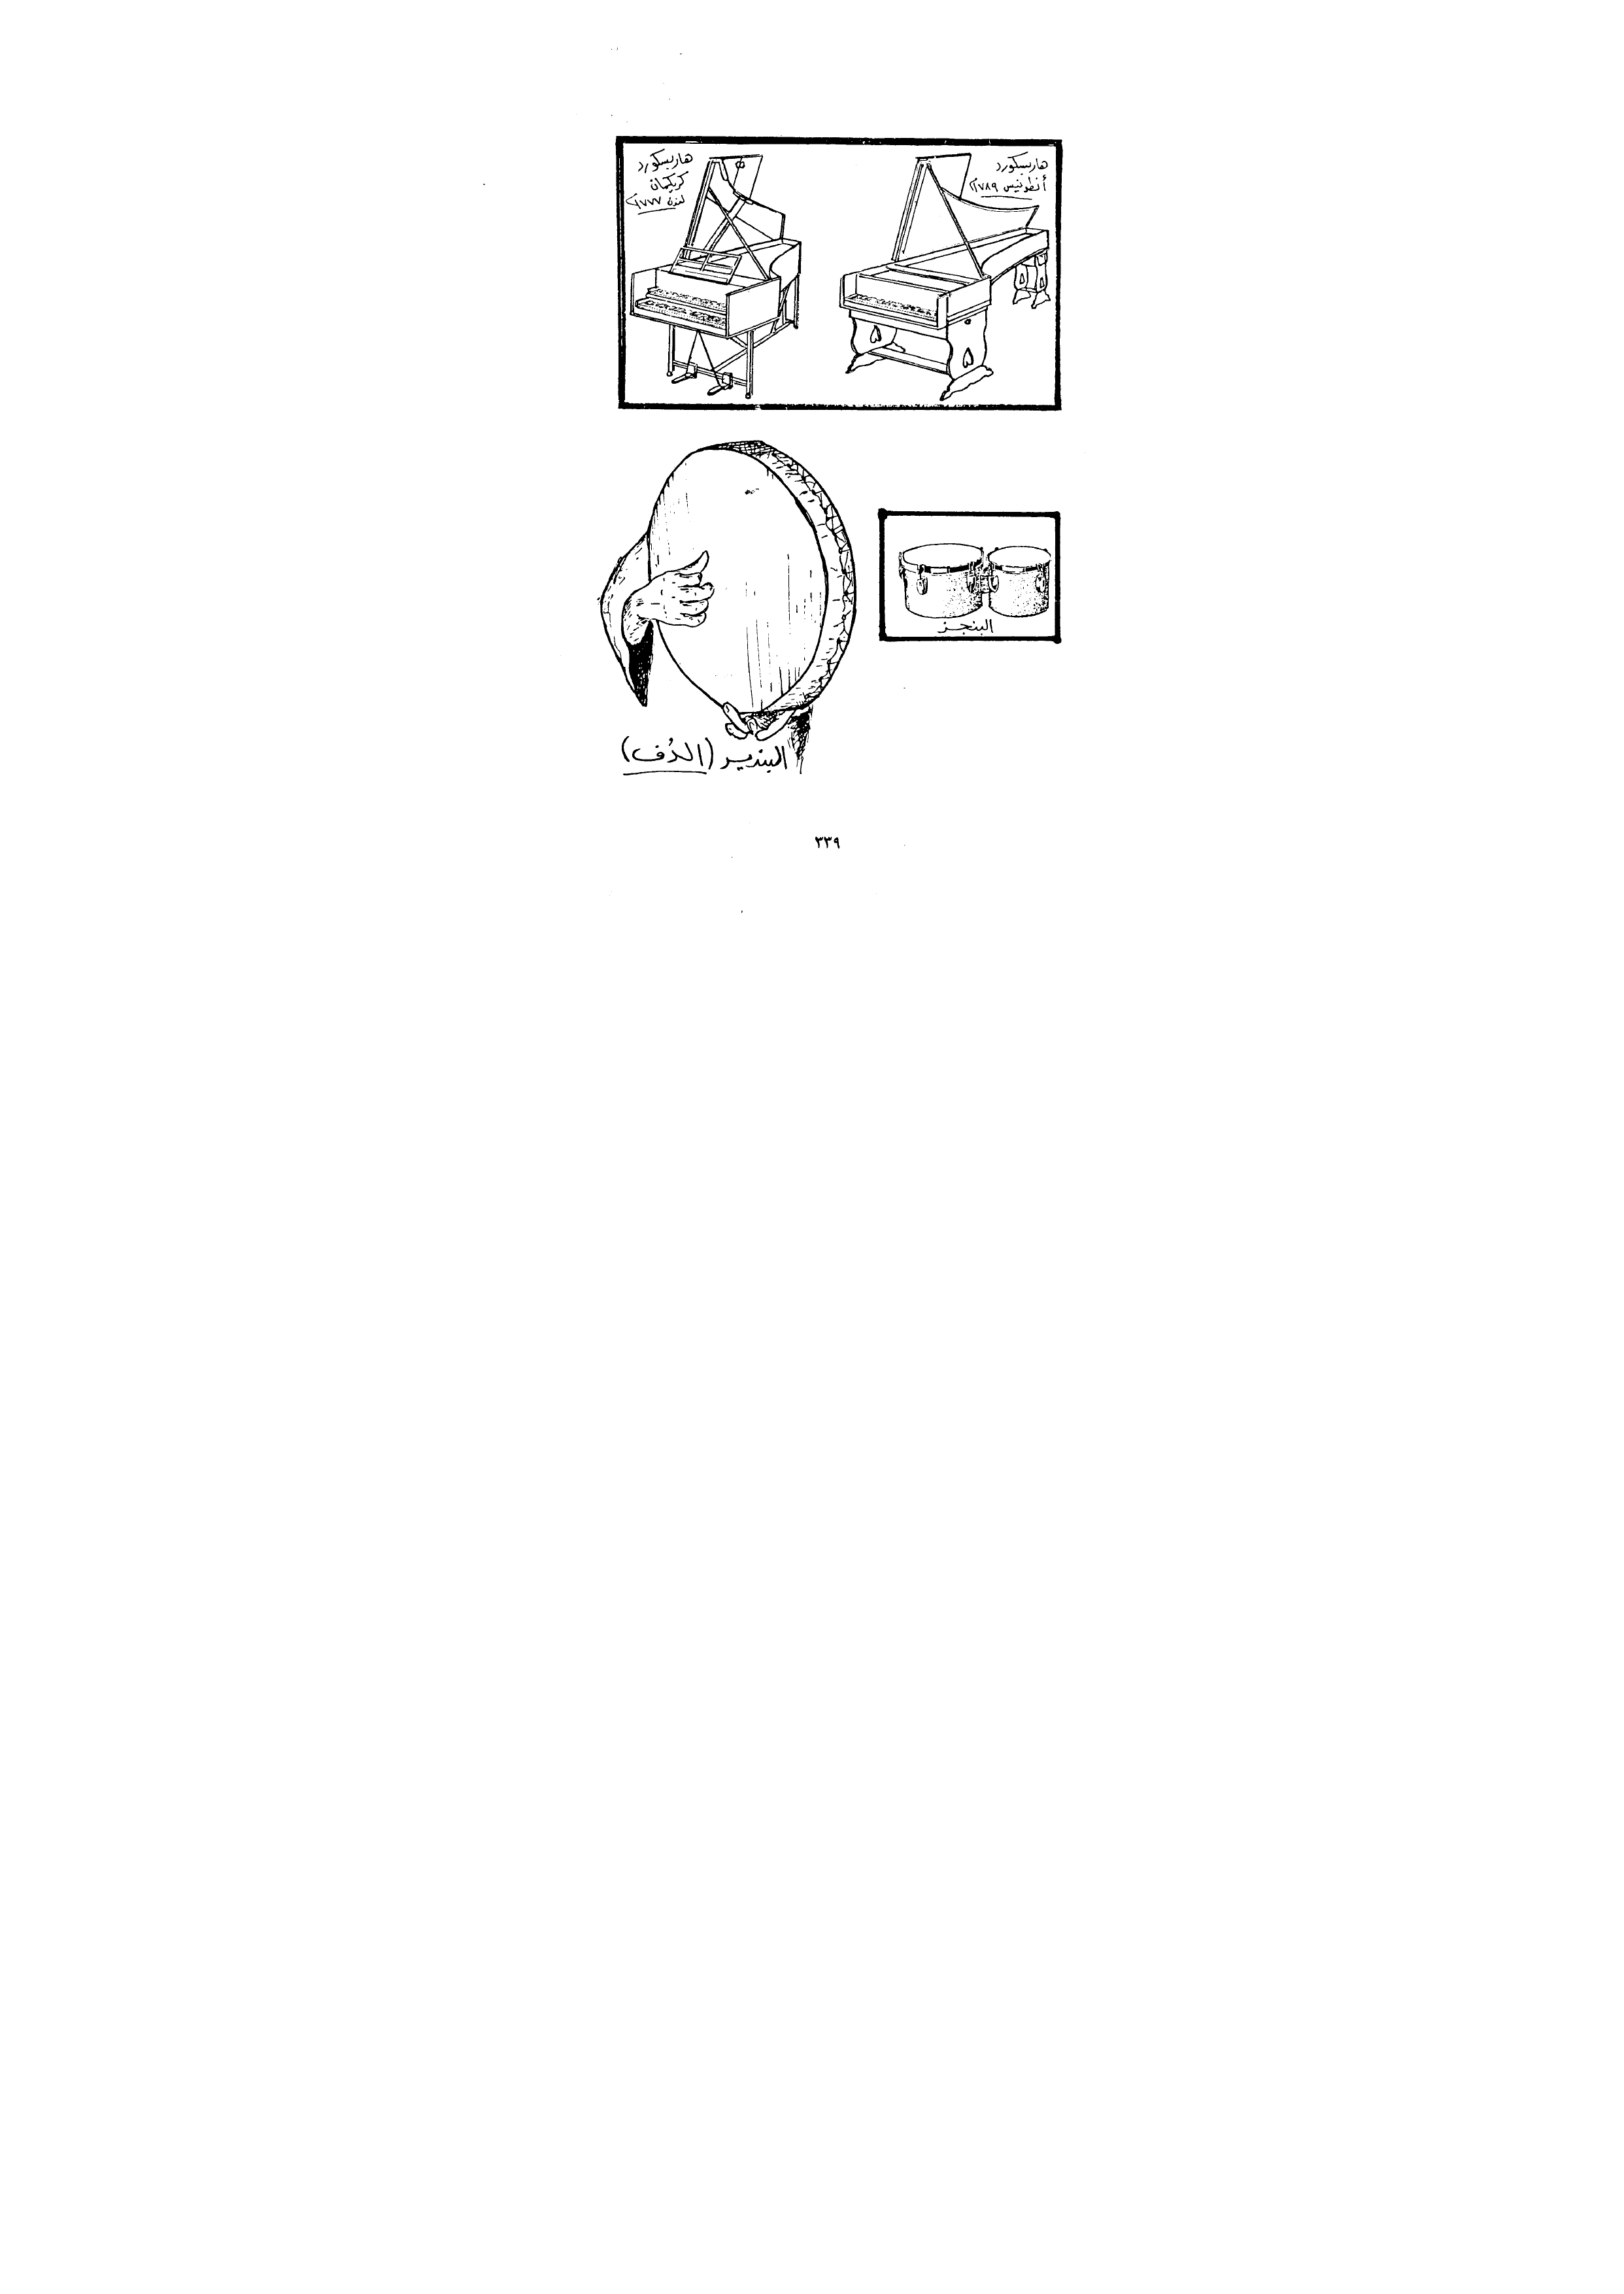 هاربسكورد
أنطونيس ١٧٨٩م
هاربسكورد
كريكمان
لندن ١٧٧٧م
البنجـز
البنديـر (الدُف)
٣٣٩